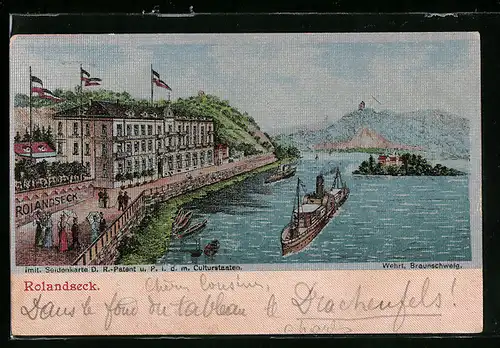 ROLANDSECK
Imit. Seidenkarte D. R.-Patent u. P. i. d. m. Culturstaaten.
Wehrt, Braunschweig.
Rolandseck.
Chère Cousine,
Dans le fond du tableau le Drachenfels!